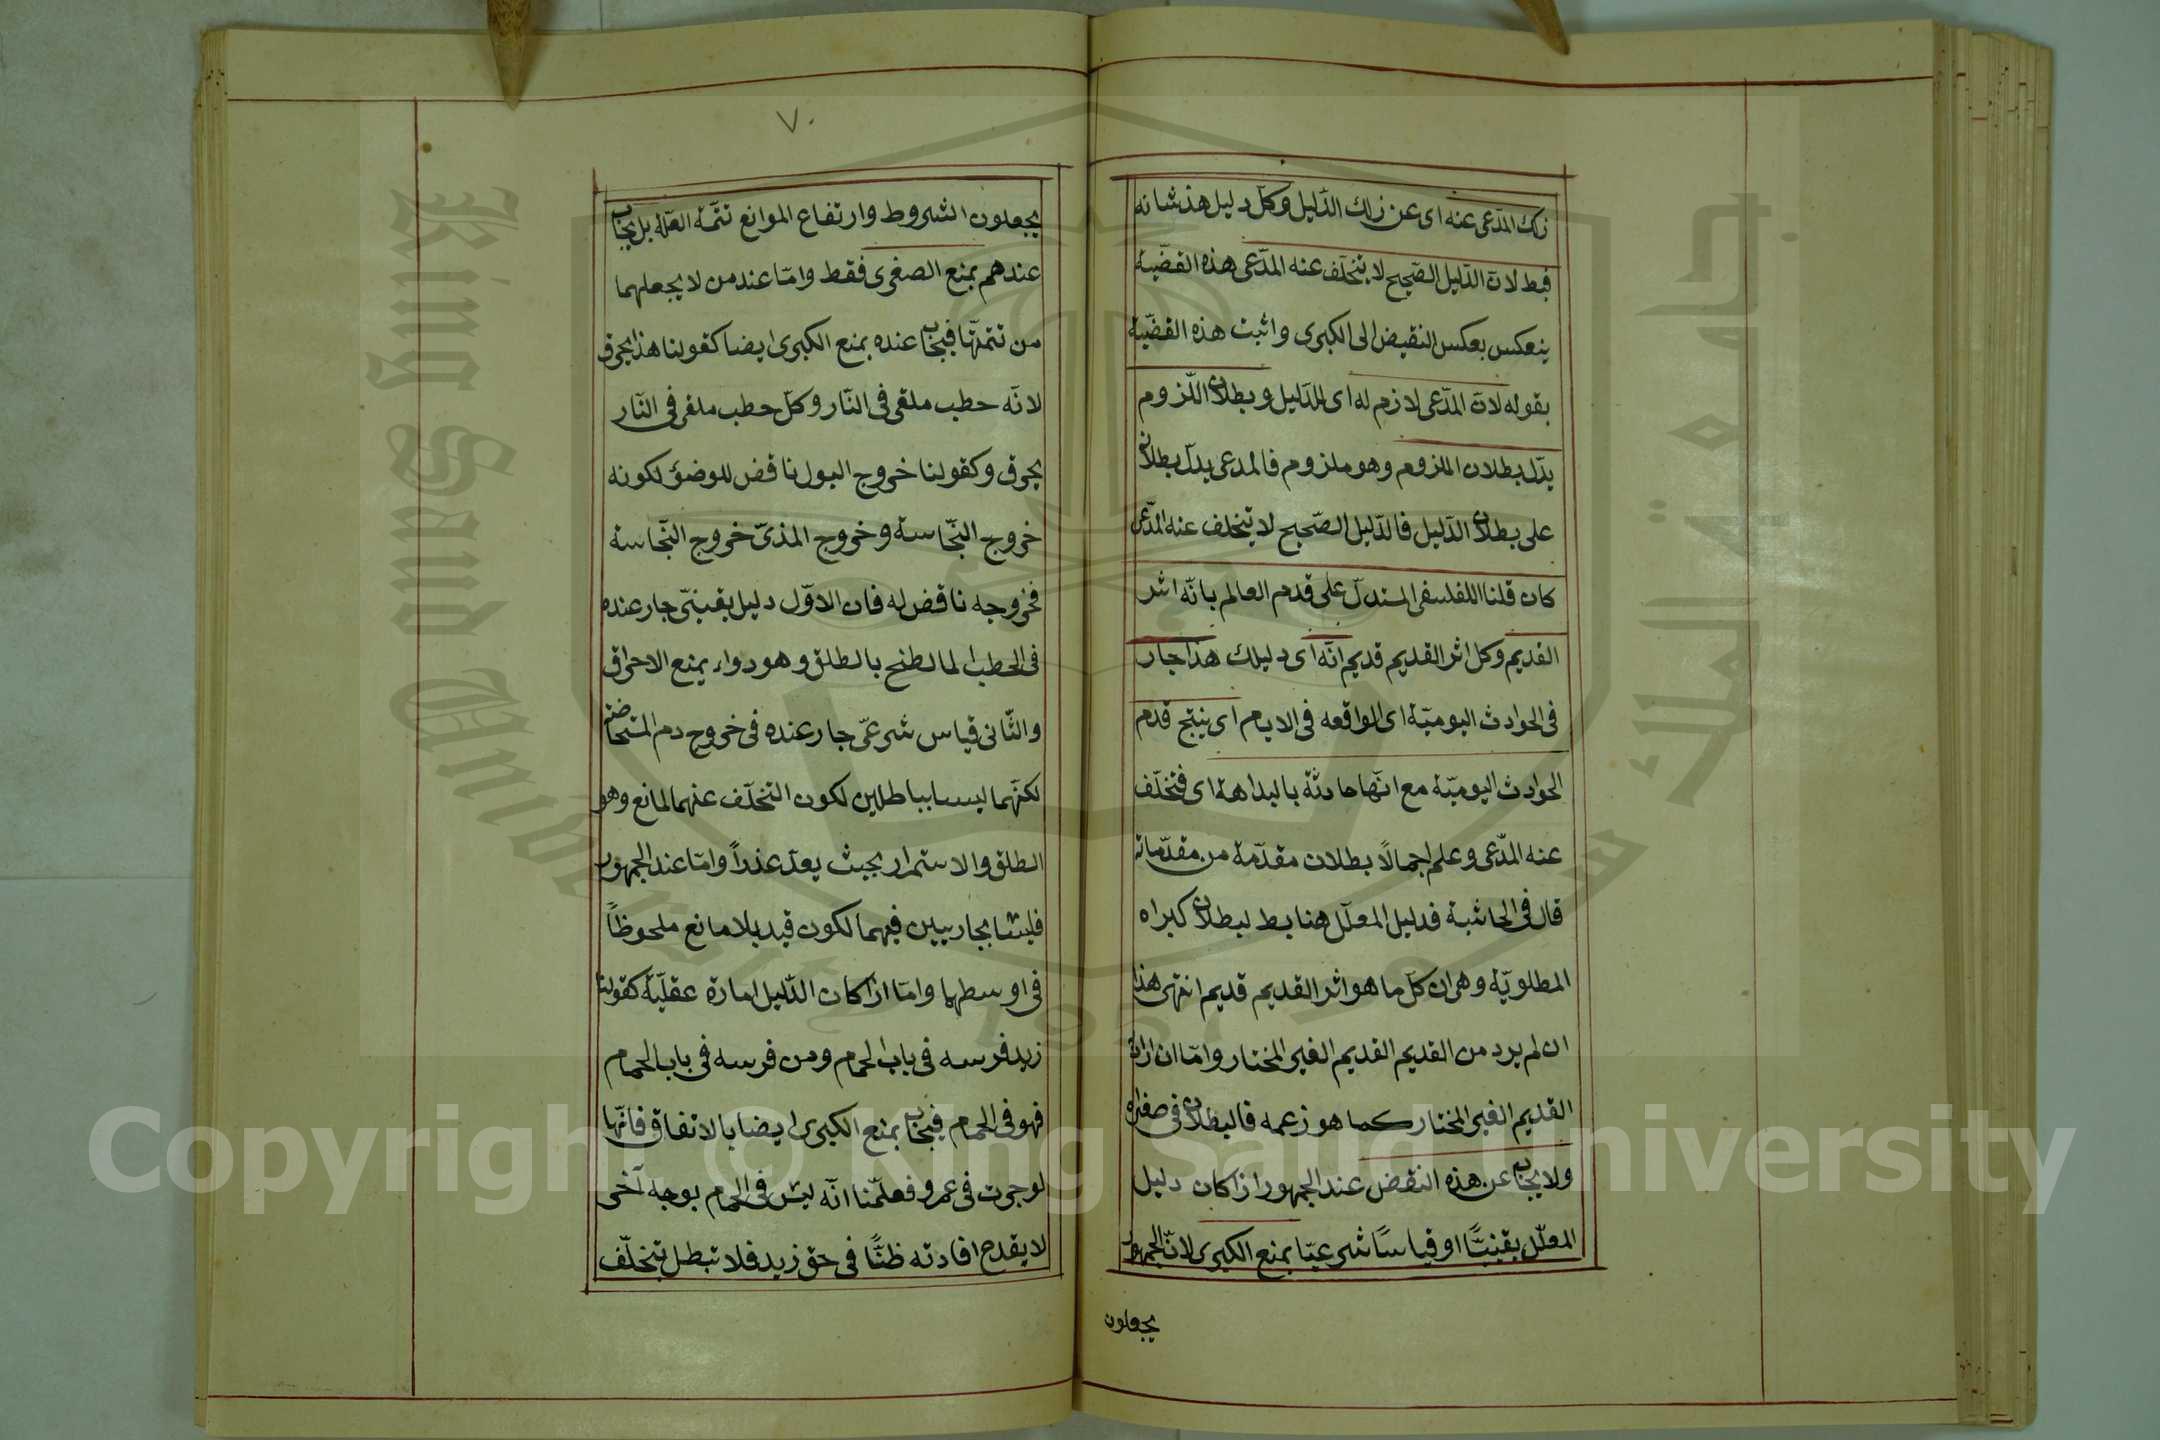 ذلك المدّعى عنه اى عن ذلك الدّليل وكلّ دليل هذ شانه
فبط لانّ الدّليل الصّحيح لا يتخلّف عنه المدّعى هذه القضيّة
ينعكس بعكس النقيض الى الكبرى واثبت هذه القضيّة
بقوله لانّ المدّعى لازم له اى للدّليل وبطلان اللّزوم
يدّل بطلان الملزوم وهو ملزوم فالمدعى يدلّ بطلانه
على بطلان الدّليل فالدّليل الصّحيح لا يتخلف عنه المدّعى
كان قلنا اللفلسفى المستدلّ على قدم العالم بانّه اثر
القديم وكل اثر القديم قديم انّه اى دليلك هذا جار
فى الحوادث اليوميّة اى الواقعه فى الايام اى ينتج قدم
الحوادث اليوميّة مع انّها حادثة بالبداهة اى فتخلّف
عنه المدّعى وعلم اجمالًا بطلان مقدّمة من مقدّماته
قال فى الحاشية فدليل المعلّل هنا بط لبطلان كبراه
المطلويّة وهى ان كلّ ما هو اثر القديم قديم انتهى هذا
ان لم يرد من القديم القديم الغير المختار وامّا ان اراد
القديم الغير المختار كما هو زعمه فالبطلان فى صغراه
ولا يجاب عن هذه النقض عند الجمهور اذا كان دليل
المعلّل يقينيّا او قياسًا شرعيّا بمنع الكبرى لانّ الجمهور
يجعلون
٧٠
يجعلون الشروط وارتفاع الموانع تتمّة العلّة بل يجاب
عندهم بمنع الصغرى فقط وامّا عند من لا يجعلهما
من تتمتها فيجاب عنده بمنع الكبرى ايضا كقولنا هذا يحرق
لانّه حطب ملقى فى النّار وكلّ حطب ملقى فى النّار
يحرق وكقولنا خروج البول ناقض للوضؤ لكونه
خروج النّجاسة وخروج المذىّ خروج النّجاسة
فخروجه ناقض له فان الاوّل دليل يقينىّ جار عنده
فى الحطب المالطخ بالطلق وهو دواء يمنع الاحراق
والثّانى قياس شرعىّ جار عنده فى خروج دم المستحاضة
لكنّهما ليسا بباطلين لكون التخلّف عنهما لمانع وهو
الطلق والاستمرار بحيث يعدّ عذراً وامّا عند الجمهور
فليسا بجاريين فيهما لكون قيد بلا مانع ملحوظاً
فى اوسطهما وامّا اذا كان الدّليل امارة عقليّة كقولنا
زيد فرسه فى باب الحمام ومن فرسه فى باب الحمام
فهو فى الحمام فيجاب بمنع الكبرى ايضا بالاتفاق فانّها
لو جرت فى عمرو فعلمنا انّه ليس فى الحمام بوجه آخر
لا يقدح افادته ظنًّا فى حق زيد فلا تبطل بتخلّف
Copyright © King Saud University
King Saud University
جامعة الملك سعود
1957